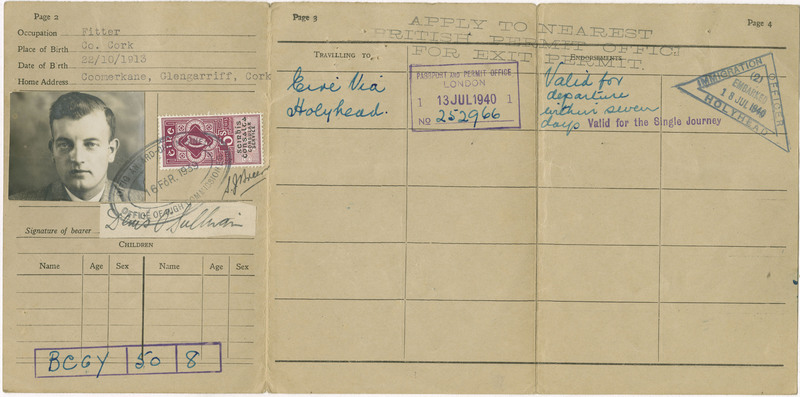 Page 2
Occupation Fitter
Place of Birth Co. Cork
Date of Birth 22/10/1913
Home Address Coomerkane, Glengarriff, Cork
EIRE
5s
SEIRBHÍS
CONSALACH
CONSULAR
SERVICE
OFFICE OF HIGH COMMISSION
Signature of bearer
Denis O'Sullivan
CHILDREN
Name Age Sex Name Age Sex
BCGY 50 8
Page 3
APPLY TO NEAREST
BRITISH PERMIT OFFICE
FOR EXIT PERMIT.
TRAVELLING TO
Eire Via
Holyhead.
PASSPORT AND PERMIT OFFICE
LONDON
1 13 JUL 1940 1
No 252966
Page 4
ENDORSEMENTS
Valid for
departure
within seven
days Valid for the Single Journey
IMMIGRATION OFFICER
(2)
EMBARKED
18 JUL 1940
HOLYHEAD